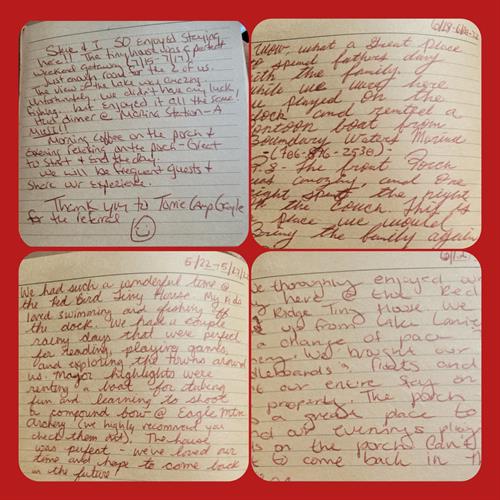 Skye & I SO Enjoyed Staying
here!! The tiny house was a perfect
weekend getaway (7/15-7/17)!
Just enough room for the 2 of us.
The view of the lake was amazing.
Unfortunately we didn't have any luck
fishing, but enjoyed it all the same!
Had dinner @ Marina Station - A
MUST!!
Morning coffee on the porch &
Evening relaxing on the porch - Great
to Start & End the day.
We will be frequent guests &
Share our Experience.
Thank you to Tame Camp
for the referral
6/18-6/18-22
Wow, what a Great place
to spend fathers day
with the family.
while we were here
we played on the
dock and rented a
pontoon boat from
Boundary Waters Marina
(706-896-2530)
P.S - The front Porch
was amazing, and one
night spent the night
on the couch. This is
a place we would
bring the family again
5/22 - 5/27/22
We had such a wonderful time @
the Red Bird Tiny House. My kids
loved swimming and fishing off
the dock. We had a couple
rainy days that were perfect
for reading, playing games,
and exploring the towns around
us. Major highlights were
renting a boat for taking
fun and learning to shoot
a compound bow @ Eagle Mtn
Archery (we highly recommend you
check them out). The house
was perfect - we've loved our
time and hope to come back
in the future
6/12
e thoroughly enjoyed our
y here @ the Red
Ridge Tiny House. We
up from Lake Lanier
a change of pace
ery. We brought our
dleboards & floats and
our entire stay on
property. The porch
s a great place to
nd our evenings playing
s on the porch. Can't
to come back in